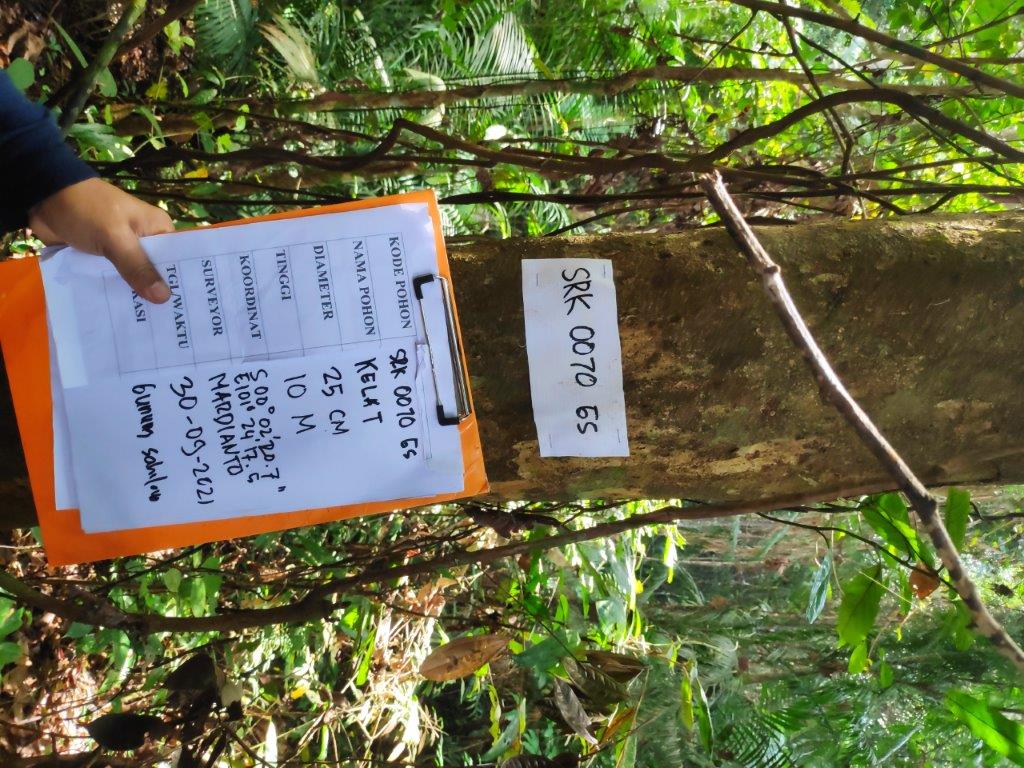 SRK 0070 GS
KODE POHON SRK 0070 GS
NAMA POHON KELAT
DIAMETER 25 CM
TINGGI 10 M
KOORDINAT S 00° 02' 20.7"
E101° 24' 17.5
SURVEYOR MARDIANTO
TGL/WAKTU 30-09-2021
KASI Gunung